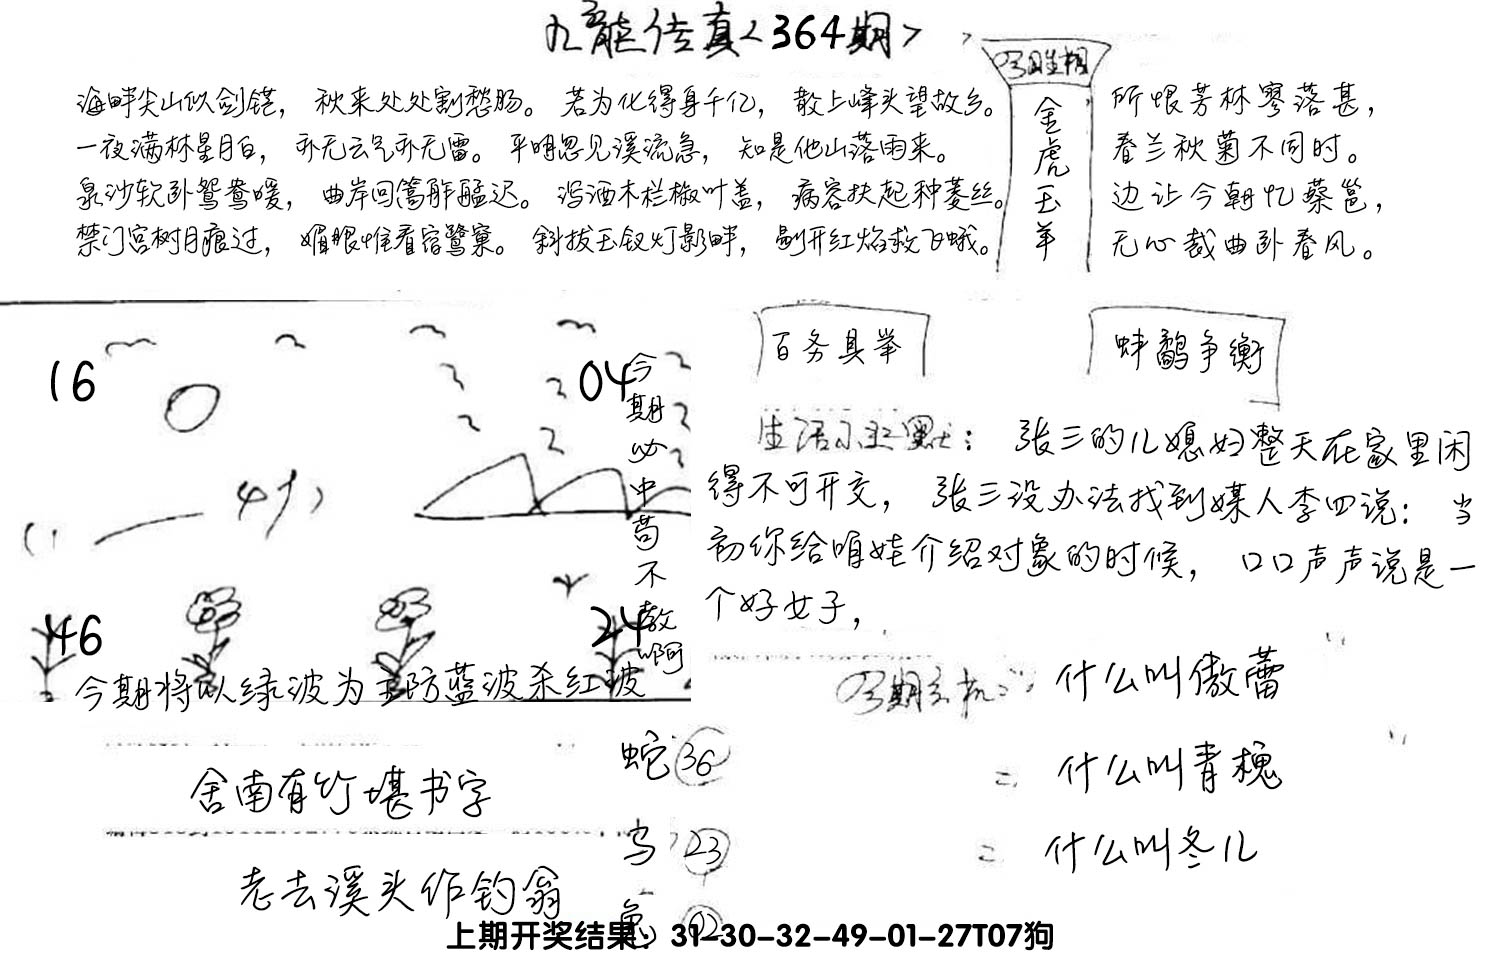 九龍传真<364期>
今日生相
金虎玉羊
海畔尖山似剑铓，秋来处处割愁肠。若为化得身千亿，散上峰头望故乡。
一夜满林星月白，亦无云气亦无雷。平明忽见溪流急，知是他山落雨来。
泉沙软卧鸳鸯暖，曲岸回篙舴艋迟。泻酒木栏椒叶盖，病容扶起种菱丝。
禁门宫树月痕过，媚眼惟看宿鹭窠。斜拔玉钗灯影畔，剔开红焰救飞蛾。
所恨芳林寥落甚，
春兰秋菊不同时。
边让今朝忆蔡邕，
无心裁曲卧春风。
16
04
46
24
今期必中苟不教啊
今期将以绿波为主防蓝波杀红波
百务具举
蚌鹬争衡
生活小幽默：张三的儿媳妇整天在家里闲
得不可开交，张三没办法找到媒人李四说：当
初你给咱娃介绍对象的时候，口口声声说是一
个好女子，
今期玄机
什么叫傲蕾
什么叫青槐
什么叫冬儿
舍南有竹堪书字
老去溪头作钓翁
蛇 36
鸟 23
兔 02
上期开奖结果：31-30-32-49-01-27T07狗